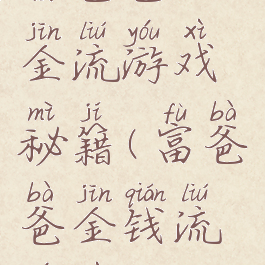 jīn liú yóu xì
金流游戏
mì jí fù bà
秘籍(富爸
bà jīn qián liú
爸金钱流